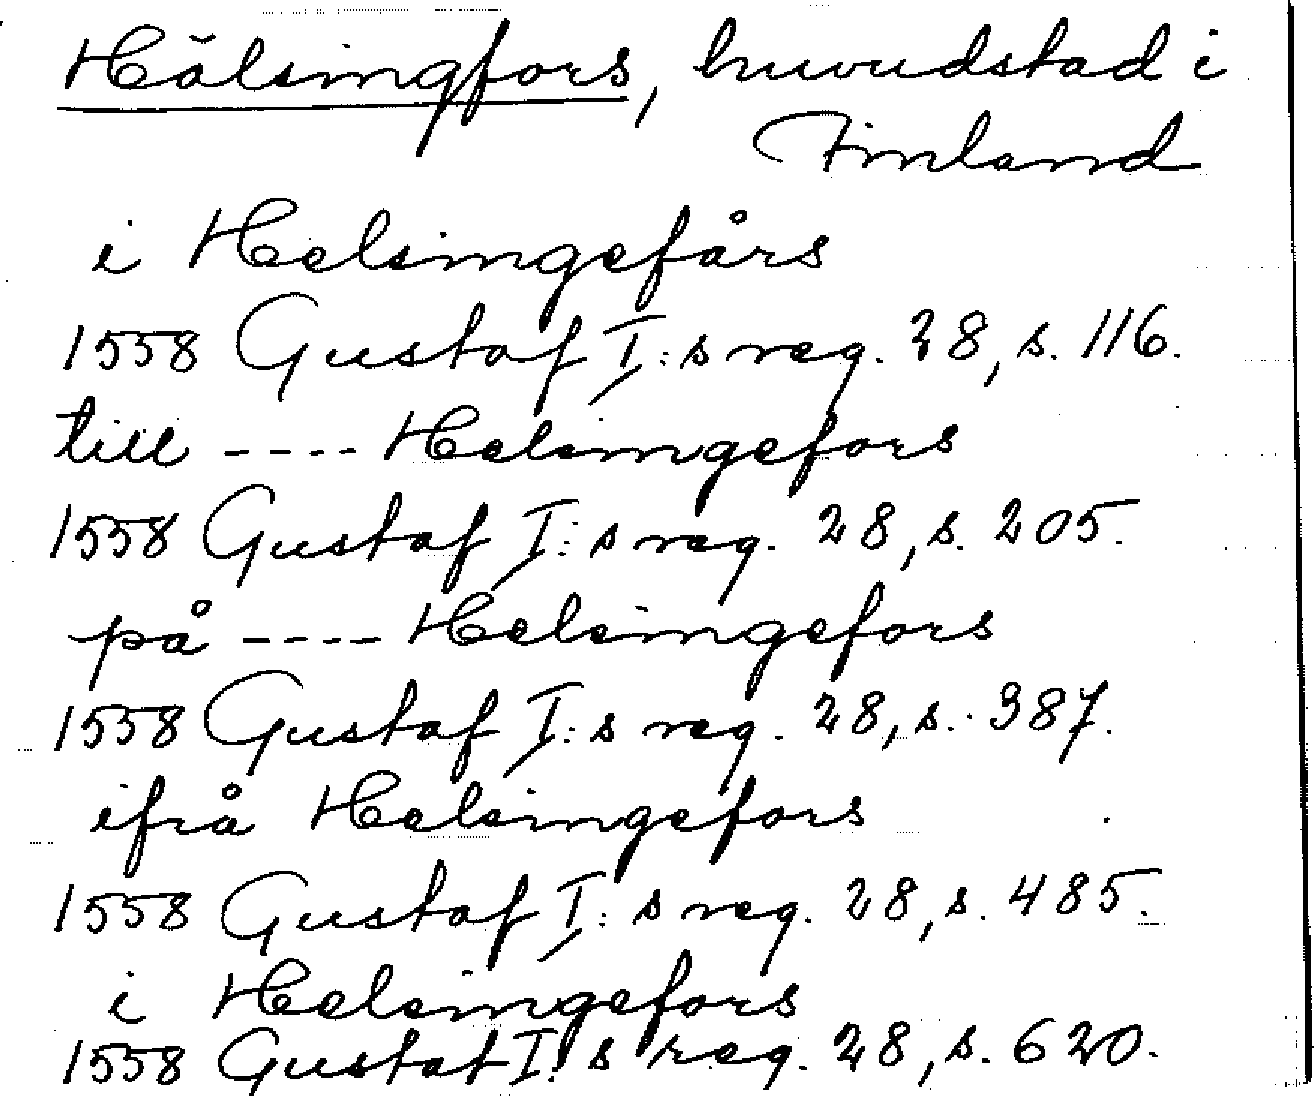 Hälsingfors, huvudstad i
Finland
i Helsingefårs
1558 Gustaf I:s reg. 28, s. 116.
till ---- Helsingefors
1558 Gustaf I:s reg. 28, s. 205.
på ---- Helsingefors
1558 Gustaf I:s reg. 28, s. 387.
ifrå Helsingefors
1558 Gustaf I:s reg. 28, s. 485.
i Helsingefors
1558 Gustaf I:s reg. 28, s. 620.